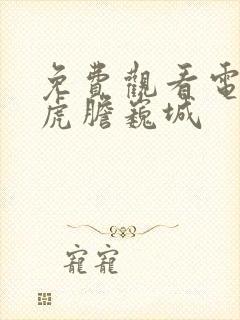 免費觀看電
虎膽巍城
寵寵